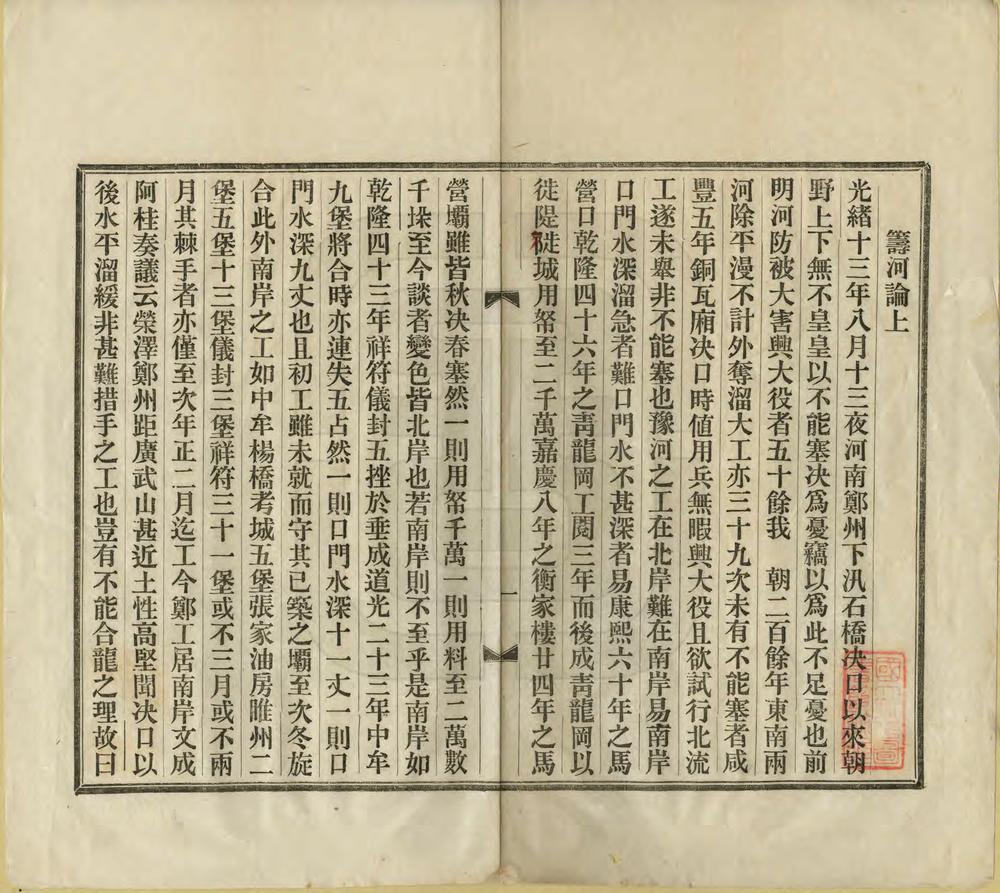 籌河論上
光緒十三年八月十三夜河南鄭州下汛石橋决口以來朝
野上下無不皇皇以不能塞决爲憂竊以爲此不足憂也前
明河防被大害興大役者五十餘我　朝二百餘年東南兩
河除平漫不計外奪溜大工亦三十九次未有不能塞者咸
豐五年銅瓦廂决口時値用兵無暇興大役且欲試行北流
工遂未舉非不能塞也豫河之工在北岸難在南岸易南岸
口門水深溜急者難口門水不甚深者易康熙六十年之馬
營口乾隆四十六年之靑龍岡工閱三年而後成靑龍岡以
徙隄徙城用帑至二千萬嘉慶八年之衡家樓廿四年之馬
一
營壩雖皆秋决春塞然一則用帑千萬一則用料至二萬數
千垜至今談者變色皆北岸也若南岸則不至乎是南岸如
乾隆四十三年祥符儀封五挫於垂成道光二十三年中牟
九堡將合時亦連失五占然一則口門水深十一丈一則口
門水深九丈也且初工雖未就而守其已築之壩至次冬旋
合此外南岸之工如中牟楊橋考城五堡張家油房睢州二
堡五堡十三堡儀封三堡祥符三十一堡或不三月或不兩
月其棘手者亦僅至次年正二月迄工今鄭工居南岸文成
阿桂奏議云榮澤鄭州距廣武山甚近土性高堅聞决口以
後水平溜緩非甚難措手之工也豈有不能合龍之理故曰